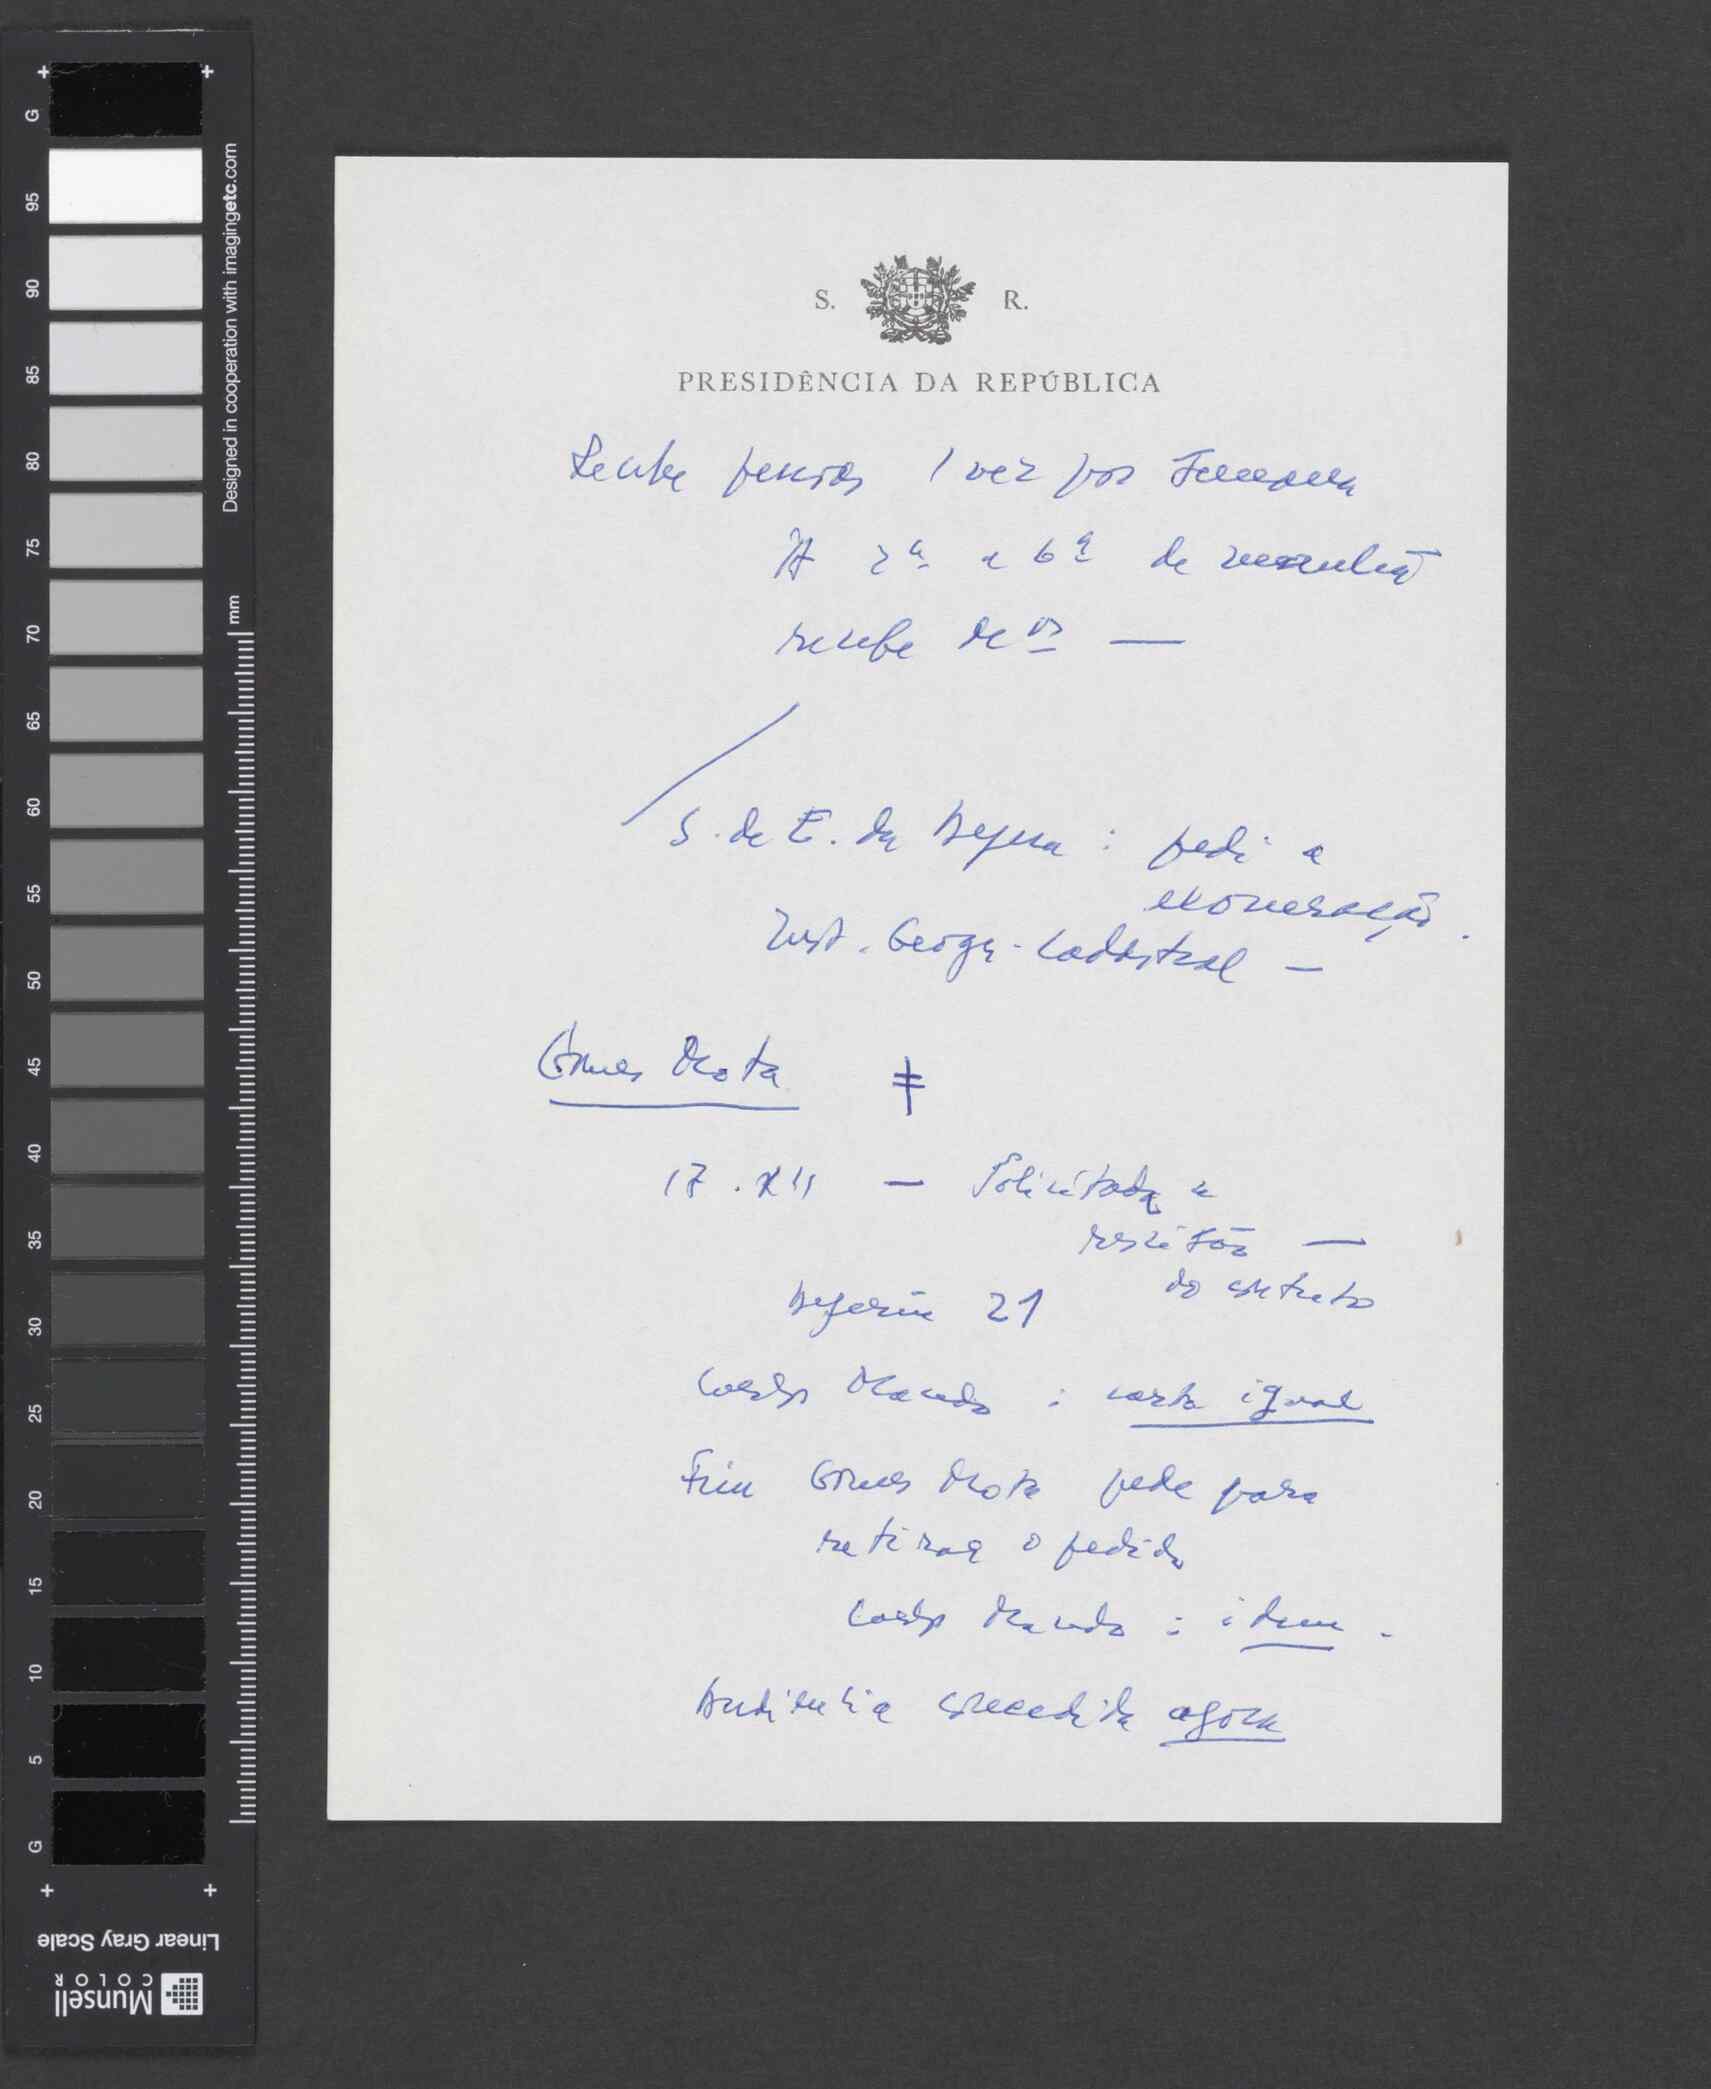 S. R.
PRESIDÊNCIA DA REPÚBLICA
Recebe pessoas 1 vez por semana
2ª e 6ª de
recebe
S. de E. da Defesa : pedi a
exoneração.
Inst. Geogr. Cadastral —
Gomes Mota ‡
17.XII — Solicitada a
rescisão —
do contrato
Deferiu 21
Carlos Macedo : carta igual
Gomes Mota pede para
retirar o pedido
Carlos Macedo : idem.
Audiência concedida agora
G
95
90
85
80
75
70
65
60
55
50
45
40
35
30
25
20
15
10
5
G
Designed in cooperation with imagingetc.com
mm
Linear Gray Scale
Munsell
COLOR